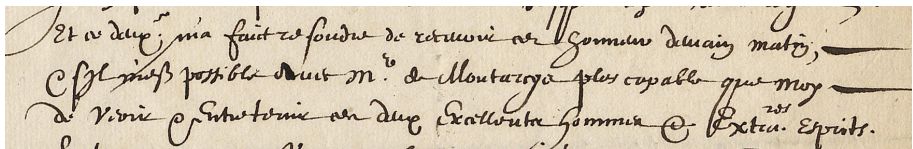 Et ce deux.r m'a faict resoudre de recevoir cet honneur demain matin,
& s'il m'est possible avec Mr. de Montarcys plus capable que moy
de Veoir & Entretenir ces deux Excellents hommes & Extra.res Esprits.